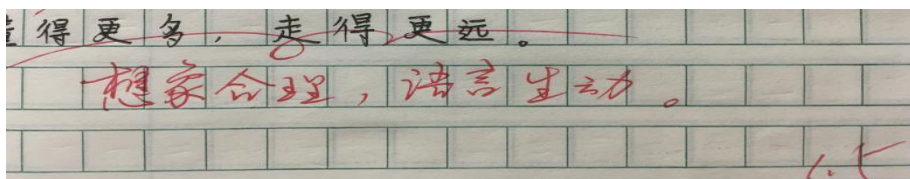 得更多，走得更远。
想象合理，语言生动。